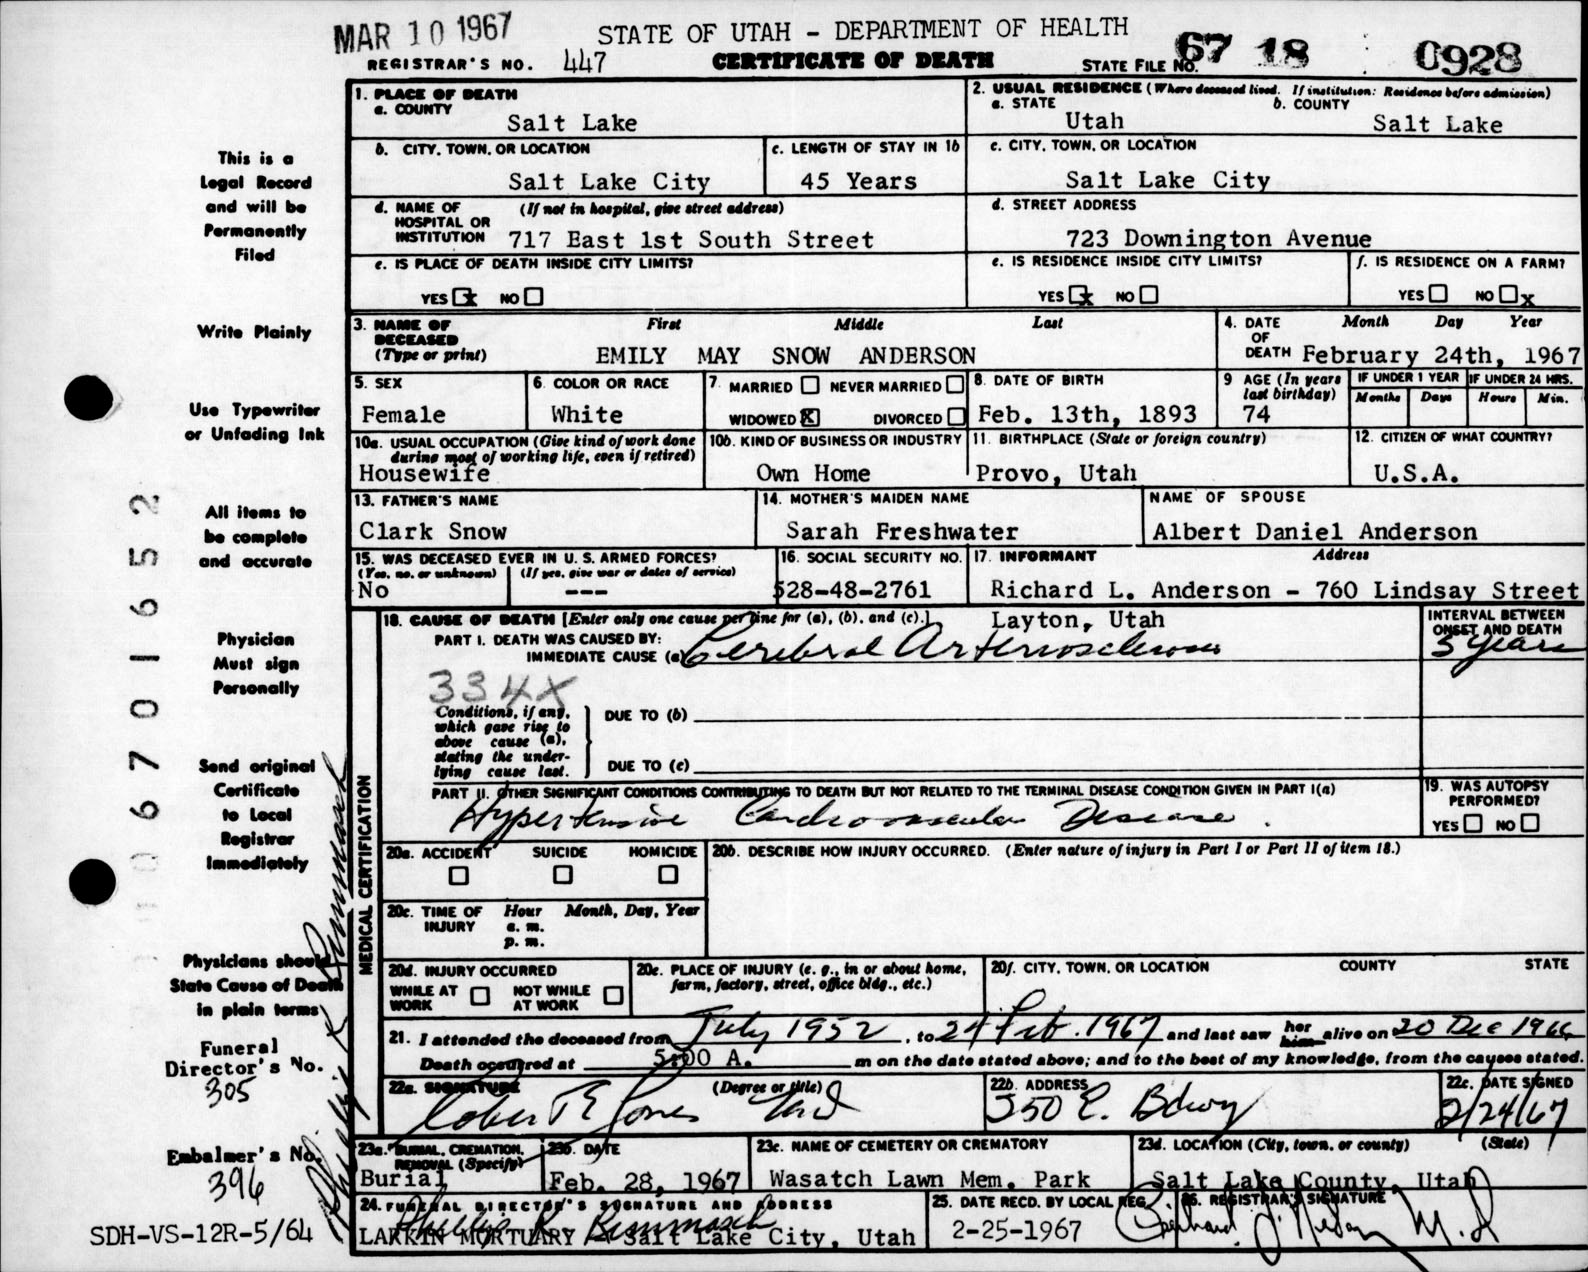 MAR 10 1967
STATE OF UTAH - DEPARTMENT OF HEALTH
REGISTRAR'S NO. 447
CERTIFICATE OF DEATH
STATE FILE NO. 67 18 0928
1. PLACE OF DEATH
a. COUNTY
Salt Lake
2. USUAL RESIDENCE (Where deceased lived. If institution: Residence before admission)
a. STATE b. COUNTY
Utah Salt Lake
b. CITY, TOWN, OR LOCATION
Salt Lake City
c. LENGTH OF STAY IN 1b
45 Years
c. CITY, TOWN, OR LOCATION
Salt Lake City
d. NAME OF HOSPITAL OR INSTITUTION (If not in hospital, give street address)
717 East 1st South Street
d. STREET ADDRESS
723 Downington Avenue
e. IS PLACE OF DEATH INSIDE CITY LIMITS?
YES x NO
e. IS RESIDENCE INSIDE CITY LIMITS?
YES x NO
f. IS RESIDENCE ON A FARM?
YES NO x
3. NAME OF DECEASED (Type or print)
First Middle Last
EMILY MAY SNOW ANDERSON
4. DATE OF DEATH
Month Day Year
February 24th, 1967
5. SEX
Female
6. COLOR OR RACE
White
7. MARRIED NEVER MARRIED
WIDOWED X DIVORCED
8. DATE OF BIRTH
Feb. 13th, 1893
9 AGE (In years last birthday)
74
IF UNDER 1 YEAR IF UNDER 24 HRS.
Months Days Hours Min.
10a. USUAL OCCUPATION (Give kind of work done during most of working life, even if retired)
Housewife
10b. KIND OF BUSINESS OR INDUSTRY
Own Home
11. BIRTHPLACE (State or foreign country)
Provo, Utah
12. CITIZEN OF WHAT COUNTRY?
U.S.A.
13. FATHER'S NAME
Clark Snow
14. MOTHER'S MAIDEN NAME
Sarah Freshwater
NAME OF SPOUSE
Albert Daniel Anderson
15. WAS DECEASED EVER IN U. S. ARMED FORCES?
(Yes, no, or unknown) (If yes, give war or dates of service)
No ---
16. SOCIAL SECURITY NO.
528-48-2761
17. INFORMANT Address
Richard L. Anderson - 760 Lindsay Street
Layton, Utah
18. CAUSE OF DEATH [Enter only one cause per line for (a), (b), and (c).]
PART I. DEATH WAS CAUSED BY:
IMMEDIATE CAUSE (a) Cerebral Arteriosclerosis
INTERVAL BETWEEN ONSET AND DEATH
5 years
334X
Conditions, if any, which gave rise to above cause (a), stating the underlying cause last.
DUE TO (b)
DUE TO (c)
PART II. OTHER SIGNIFICANT CONDITIONS CONTRIBUTING TO DEATH BUT NOT RELATED TO THE TERMINAL DISEASE CONDITION GIVEN IN PART I(a)
Hypertensive Cardiovascular Disease.
19. WAS AUTOPSY PERFORMED?
YES NO
MEDICAL CERTIFICATION
20a. ACCIDENT SUICIDE HOMICIDE
20b. DESCRIBE HOW INJURY OCCURRED. (Enter nature of injury in Part I or Part II of item 18.)
20c. TIME OF INJURY Hour Month, Day, Year
a. m.
p. m.
20d. INJURY OCCURRED
WHILE AT WORK NOT WHILE AT WORK
20e. PLACE OF INJURY (e. g., in or about home, farm, factory, street, office bldg., etc.)
20f. CITY, TOWN, OR LOCATION COUNTY STATE
21. I attended the deceased from July 1952, to 24 Feb. 1967 and last saw her him alive on 20 Dec 1966
Death occurred at 5:00 A. m on the date stated above; and to the best of my knowledge, from the causes stated.
22a. SIGNATURE (Degree or title)
Robert E Jones MD
22b. ADDRESS
250 E. Bdwy
22c. DATE SIGNED
2/24/67
23a. BURIAL, CREMATION, REMOVAL (Specify)
Burial
23b. DATE
Feb. 28, 1967
23c. NAME OF CEMETERY OR CREMATORY
Wasatch Lawn Mem. Park
23d. LOCATION (City, town, or county) (State)
Salt Lake County, Utah
24. FUNERAL DIRECTOR'S SIGNATURE AND ADDRESS
LARKIN MORTUARY - Salt Lake City, Utah
25. DATE RECD. BY LOCAL REG.
2-25-1967
26. REGISTRAR'S SIGNATURE
M.D
This is a
Legal Record
and will be
Permanently
Filed
Write Plainly
Use Typewriter
or Unfading Ink
All items to
be complete
and accurate
Physician
Must sign
Personally
Send original
Certificate
to Local
Registrar
Immediately
Physicians should
State Cause of Death
in plain terms
Funeral
Director's No.
305
Embalmer's No.
396
SDH-VS-12R-5/64
006701652